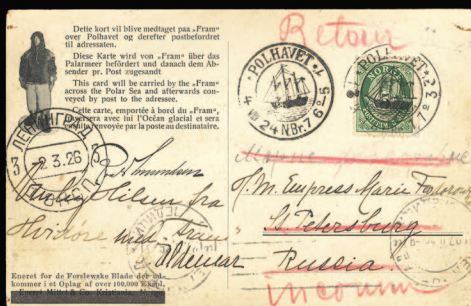 Dette kort vil blive medtaget paa „Fram"
over Polhavet og derefter postbefordret
til adressaten.
Diese Karte wird von „Fram" über das
Polarmeer befördert und danach dem Ab-
sender pr. Post zugesandt
This card will be carried by the „Fram"
across the Polar Sea and afterwards con-
veyed by post to the adressee.
Cette carte, emportée à bord du „Fram",
traversera avec lui l'Océan glacial et sera
ensuite renvoyée par la poste au destinataire.
Retour
POLHAVET
24 NBr. 7 6°5
POLHAVET
NORGE
ЛЕНИНГРАД
3 -2.3.26 3
Hilsen fra
Hvidøre med Fram
H.M. Empress Marie Feodorovna
St Petersburg
Russia
inconnu
Eneret for de Forslewske Blade der ud-
kommer i et Oplag af over 100,000 Expl.
Eneret Mittet & Co. Kristiania, Norge